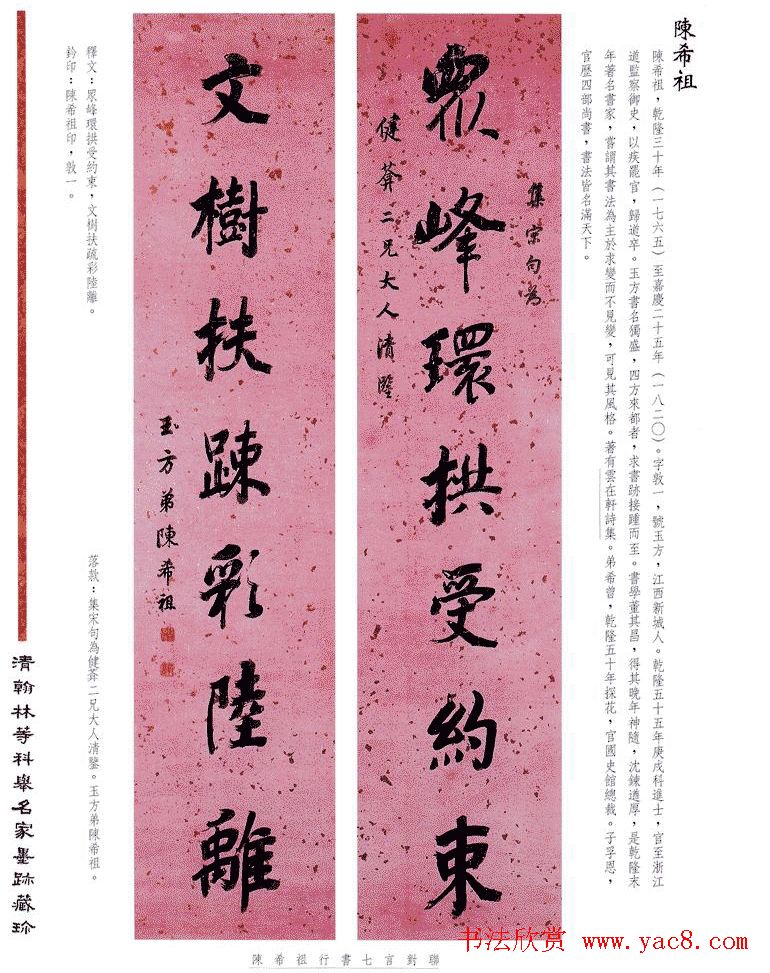 陳希祖
陳希祖，乾隆三十年（一七六五）至嘉慶二十五年（一八二〇）。字敦一，號玉方，江西新城人。乾隆五十五年庚戌科進士，官至浙江
道監察御史，以疾罷官，歸道卒。玉方書名獨盛，四方來都者，求書跡接踵而至。書學董其昌，得其晚年神隨，沈鍊遒厚，是乾隆末
年著名書家，嘗謂其書法為主於求變而不見變，可見其風格。著有雲在軒詩集。弟希曾，乾隆五十年探花，官國史館總裁。子孚恩，
官歷四部尚書，書法皆名滿天下。
集宋句為
眾峰環拱受約束
健葊二兄大人清鑒
文樹扶踈彩陸離
玉方弟陳希祖
釋文：眾峰環拱受約束，文樹扶疏彩陸離。
鈐印：陳希祖印，敦一。
落款：集宋句為健葊二兄大人清鑒。玉方弟陳希祖。
清翰林等科舉名家墨跡藏珍
陳希祖行書七言對聯
书法欣赏 www.yac8.com